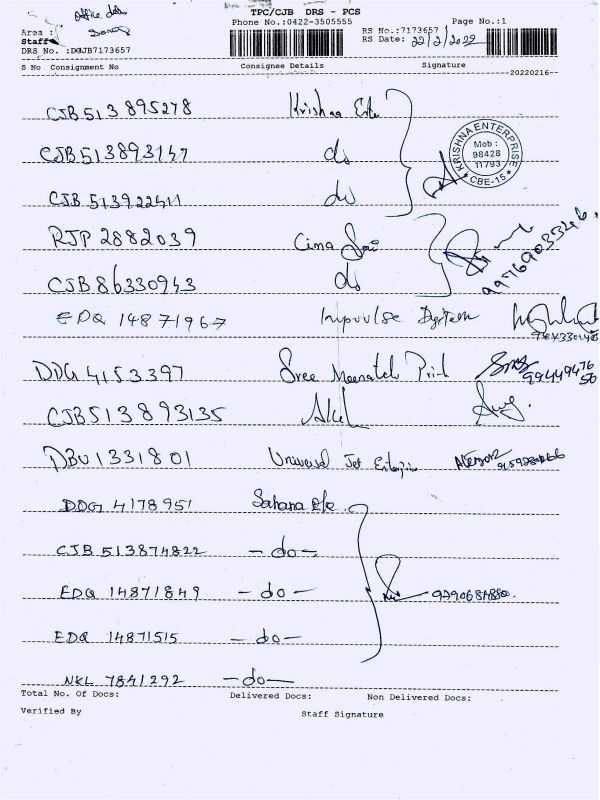 TPC/CJB DRS - PCS
Office del
Phone No.:0422-3505555 Page No.:1
Area :
Staff
RS No.:7173657
RS Date: 22/2/2022
DRS No. :DGJB7173657
S No Consignment No Consignee Details Signature
20220216
CJB 513895278 Krishna Ente
CJB 513893147 do
KRISHNA ENTERPRISE
Mob :
98428
11793
CBE-15
CJB 513922411 do
RJP 2882039 Cima
9976903346
CJB 86330943 do
EDQ 14871967 Impuulse
DDG 4153397 Sree Meenatch Print
9944947650
CJB513893135
DBU 1331801 Universal Jet Enterprise
DDG 4178951 Sahana
CJB 513874822 - do -
EDQ 14871849 - do -
EDQ 14871515 - do -
NKL 7841292 - do -
Total No. Of Docs: Delivered Docs: Non Delivered Docs:
Verified By Staff Signature